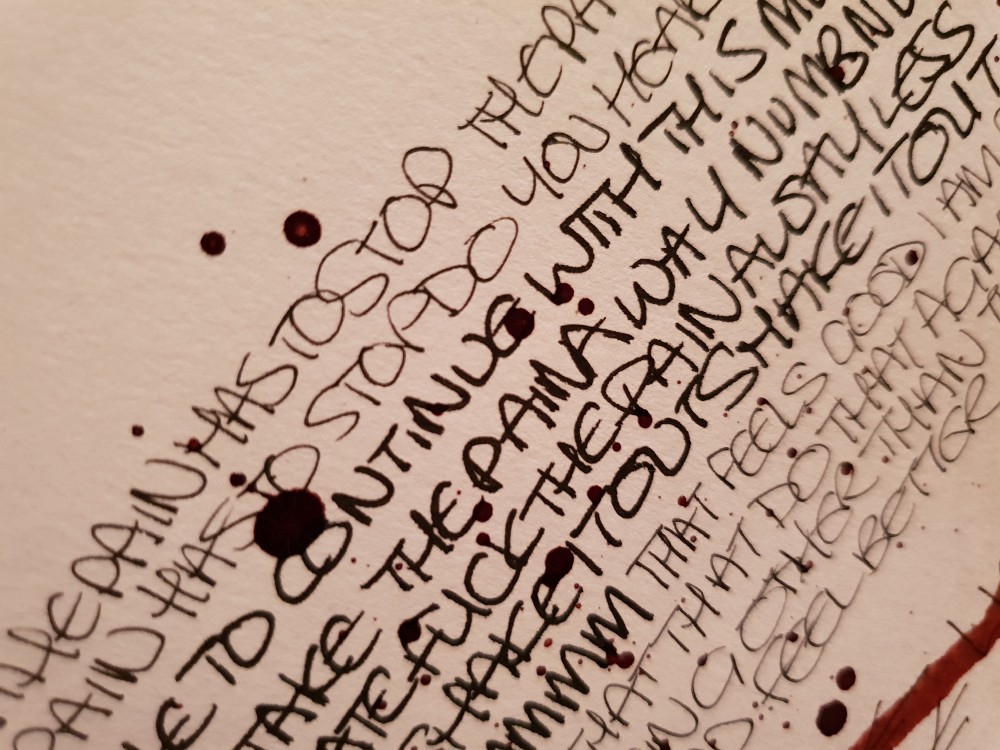 THE PAIN HAS TO STOP THE PA
PAIN HAS TO STOP DO YOU HEAR
E TO CONTINUE WITH THIS M
TAKE THE PAIN AWAY NUMBN
ATE FUCK THE PAIN ALWAYS LESS
SHAKE IT OUT SHAKE IT OUT
MMM THAT FEELS GOOD I AM
THAT THAT DO THAT AGA
NG OTHER THAN T
O FEEL BETTER